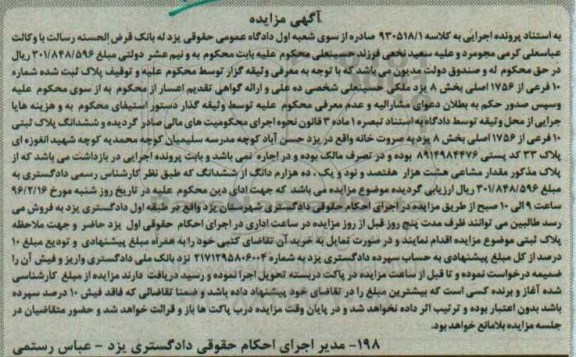 آگهی مزایده
به استناد پرونده اجرایی به کلاسه ۹۳۰۵۱۸/۱ صادره از سوی شعبه اول دادگاه عمومی حقوقی یزد له بانک قرض الحسنه رسالت با وکالت
عباسعلی کرمی مجومرد و علیه سعید نخعی فرزند حسینعلی محکوم علیه بابت محکوم به و نیم عشر دولتی مبلغ ۳۰۱/۸۴۸/۵۹۶ ریال
در حق محکوم له و صندوق دولت مدیون می باشد که با توجه به معرفی وثیقه گزار توسط محکوم علیه و توقیف پلاک ثبت شده شماره
۱۰ فرعی از ۱۷۵۶ اصلی بخش ۸ یزد ملکی حسینعلی شخصی ده علی و ارائه گواهی تقدیم اعسار از محکوم به از سوی محکوم علیه
وسپس صدور حکم به بطلان دعوای مشارالیه و عدم معرفی محکوم علیه توسط وثیقه گذار دستور استیفای محکوم به و هزینه هایا
جرایی از محل وثیقه توسط دادگاه به استناد تبصره ۱ ماده ۳ قانون نحوه اجرای محکومیت های مالی صادر گردیده و ششدانگ پلاک ثبتی
۱۰ فرعی از ۱۷۵۶ اصلی بخش ۸ یزد به صروت خانه واقع در یزد حسن آباد کوچه مدرسه سلیمیان کوچه محمدیه کوچه شهید انغوزه ای
پلاک ۳۳ کد پستی ۸۹۱۴۹۸۴۴۷۶ بوده و در تصرف مالک بوده و در اجاره نمی باشد و بابت پرونده اجرایی در بازداشت می باشد که از
پلاک مذکور مقدار مشاعی هشت هزار هفتصد و نود و یک . ده هزارم دانگ از ششدانگ که طبق نظر کارشناس رسمی دادگستری به
مبلغ ۳۰۱/۸۴۸/۵۹۶ ریال ارزیابی گردیده موضوع مزایده می باشد که جهت ادای دین محکوم علیه در تاریخ روز شنبه مورخ ۹۶/۲/۱۶
ساعت ۹ الی ۱۰ صبح از طریق مزایده در اجرای احکام حقوقی دادگستری شهرستان یزد واقع در طبقه اول دادگستری یزد به فروش می
رسد طالبین می توانند ظرف مدت پنج روز قبل از روز مزایده در ساعت اداری در اجرای احکام حقوقی اول یزد حاضر و جهت ملاحظه
پلاک ثبتی موضوع مزایده اقدام نمایند و در صورت تمایل به خرید آن تقاضای کتبی خود را به همراه مبلغ پیشنهادی و تودیع مبلغ ۱۰
درصد از کل مبلغ پیشنهادی به حساب سپرده دادگستری یزد به شماره ۲۱۷۱۲۹۵۸۰۶۰۰۴ نزد بانک ملی دادگستری واریز و فیش آن را
ضمیمه درخواست نموده و تا قبل از ساعت مزایده در پاکت دربسته تحویل اجرا نموده و رسید دریافت دارند مزایده از مبلغ کارشناسی
شده آغاز و برنده کسی است که بیشترین مبلغ را در تقاضای خود پیشنهاد داده باشد و ضمنا تقاضائی که فاقد فیش ۱۰ درصد سپرده
باشد بدون اعتبار بوده و ترتیب اثر داده نخواهد شد و در پایان وقت مزایده درب پاکت ها باز و قرائت خواهد شد و حضور متقاضیان در
جلسه مزایده بلامانع خواهد بود.
۱۹۸- مدیر اجرای احکام حقوقی دادگستری یزد - عباس رستمی